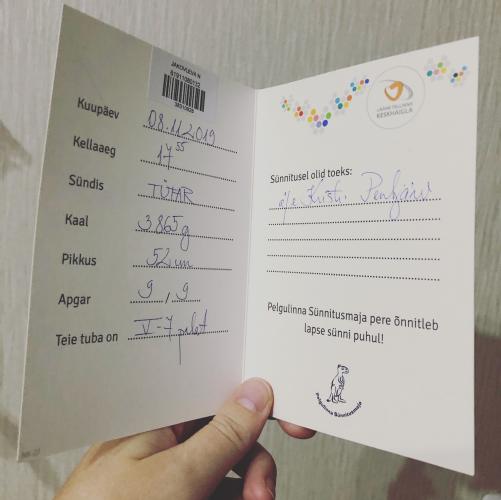 JAKOVLEVA N
Kuupäev 08.11.2019
Kellaaeg 17 55
Sündis TÜTAR
Kaal 3865 g
Pikkus 52 cm
Apgar 9 / 9
Teie tuba on V-7 palat
LÄÄNE-TALLINNA
KESKHAIGLA
Sünnitusel olid toeks:
Kristi
Pelgulinna Sünnitusmaja pere õnnitleb
lapse sünni puhul!
Pelgulinna Sünnitusmaja